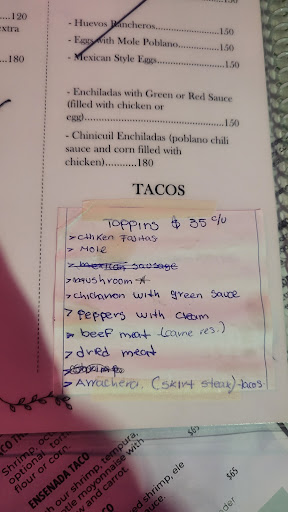 ...120
extra
...180
150
- Huevos Rancheros...........................150
- Eggs with Mole Poblano...................150
- Mexican Style Eggs..........................150
- Enchiladas with Green or Red Sauce
(filled with chicken or
egg)..................................................150
- Chinicuil Enchiladas (poblano chili
sauce and corn filled with
chicken)...........180
TACOS
Toppins $ 35 c/u
> Chiken Fajitas
> Mole
> mexican sausage
> mushroom
> chicharron with green sauce
> Peppers with cream
> beef meat (carne res.)
> dried meat
> Arrachera. (skirt steak) tacos.
TACO
Shrimp, oc
optional to
flour or corn.
ENSENADA TACO
shrimp, tempura,
mayonnaise with
carrot.
$65
shrimp, ele
sauce.
$65